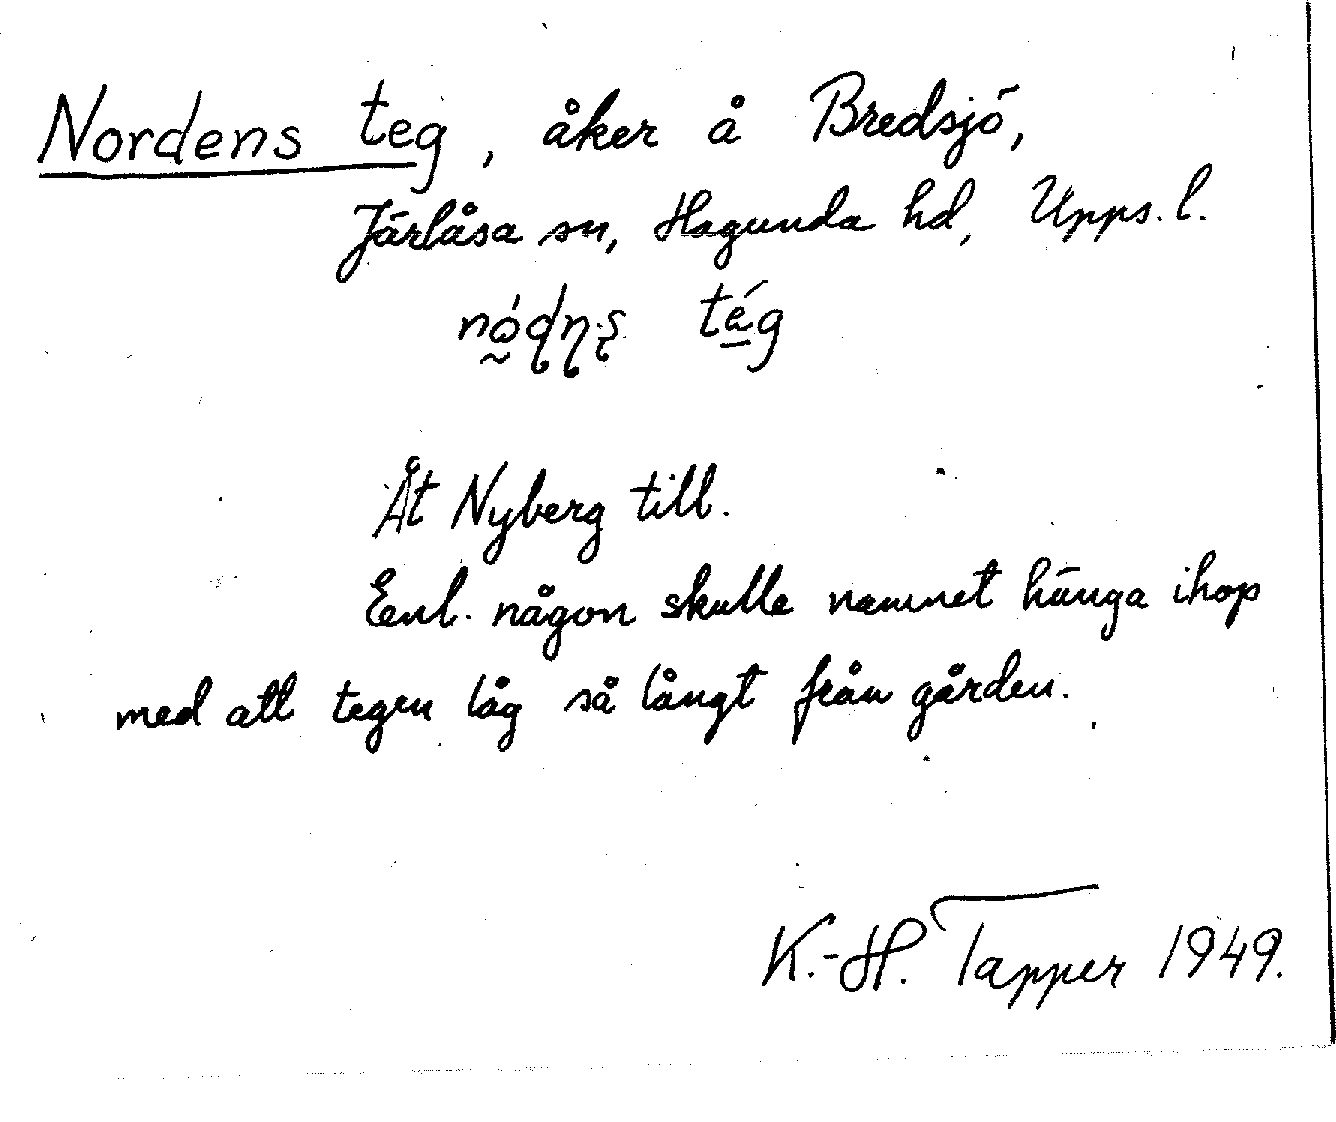 Nordens teg, åker å Bredsjö,
Järlåsa sn, Hagunda hd, Upps. l.
tég
Åt Nyberg till.
Enl. någon skulle namnet hänga ihop
med att tegen låg så långt från gården.
K.-H. Tapper 1949.